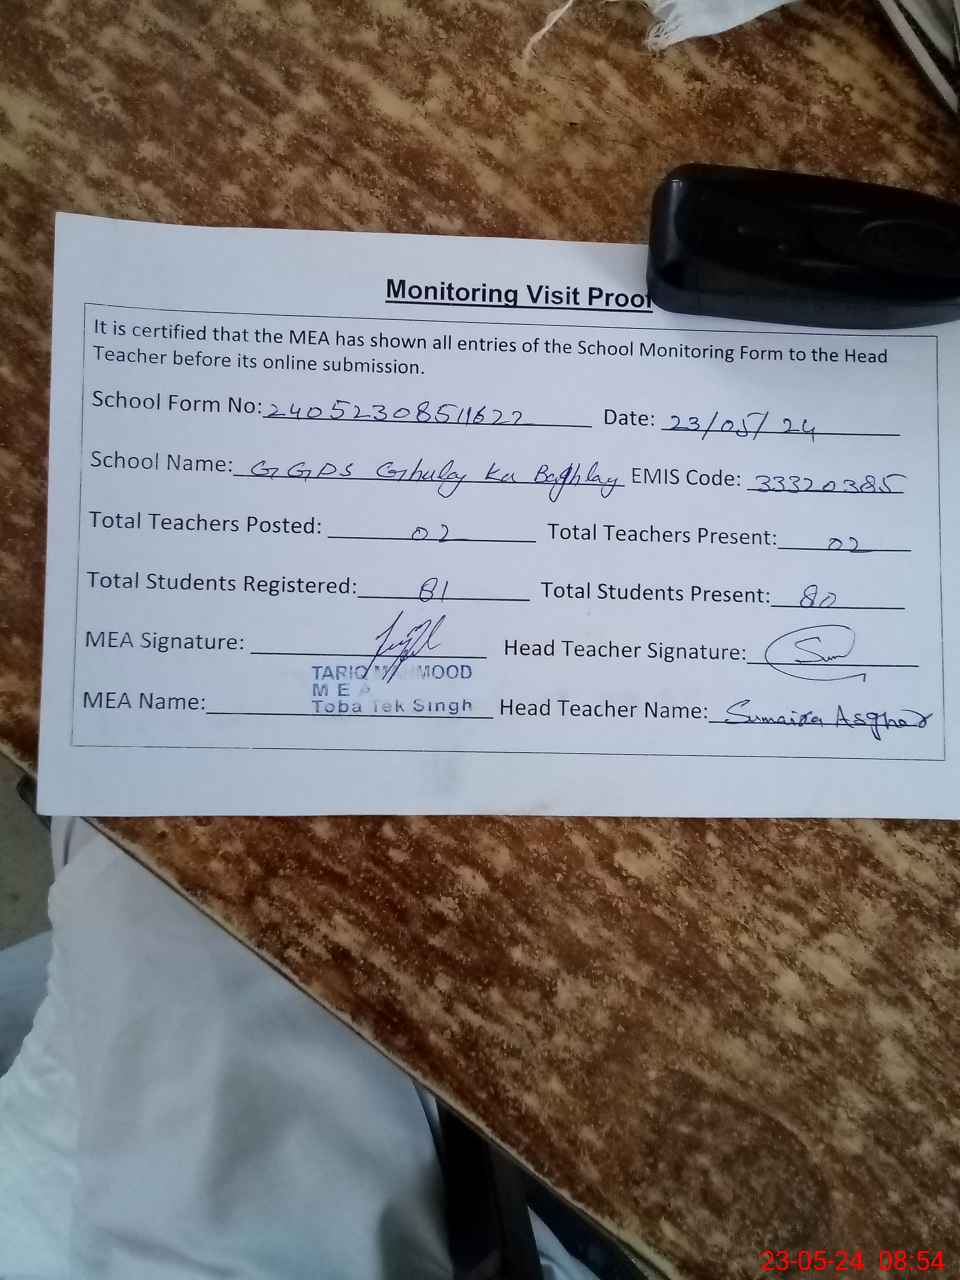 Monitoring Visit Proof
It is certified that the MEA has shown all entries of the School Monitoring Form to the Head
Teacher before its online submission.
School Form No: 24052308511622 Date: 23/05/24
School Name: GGPS Ghulay Ka Baghlay EMIS Code: 33320385
Total Teachers Posted: 02 Total Teachers Present: 02
Total Students Registered: 81 Total Students Present: 80
MEA Signature: Head Teacher Signature: Sum
TARIQ MAHMOOD
MEA
MEA Name: Toba Tek Singh Head Teacher Name: Sumaira Asghar
23-05-24 08:54